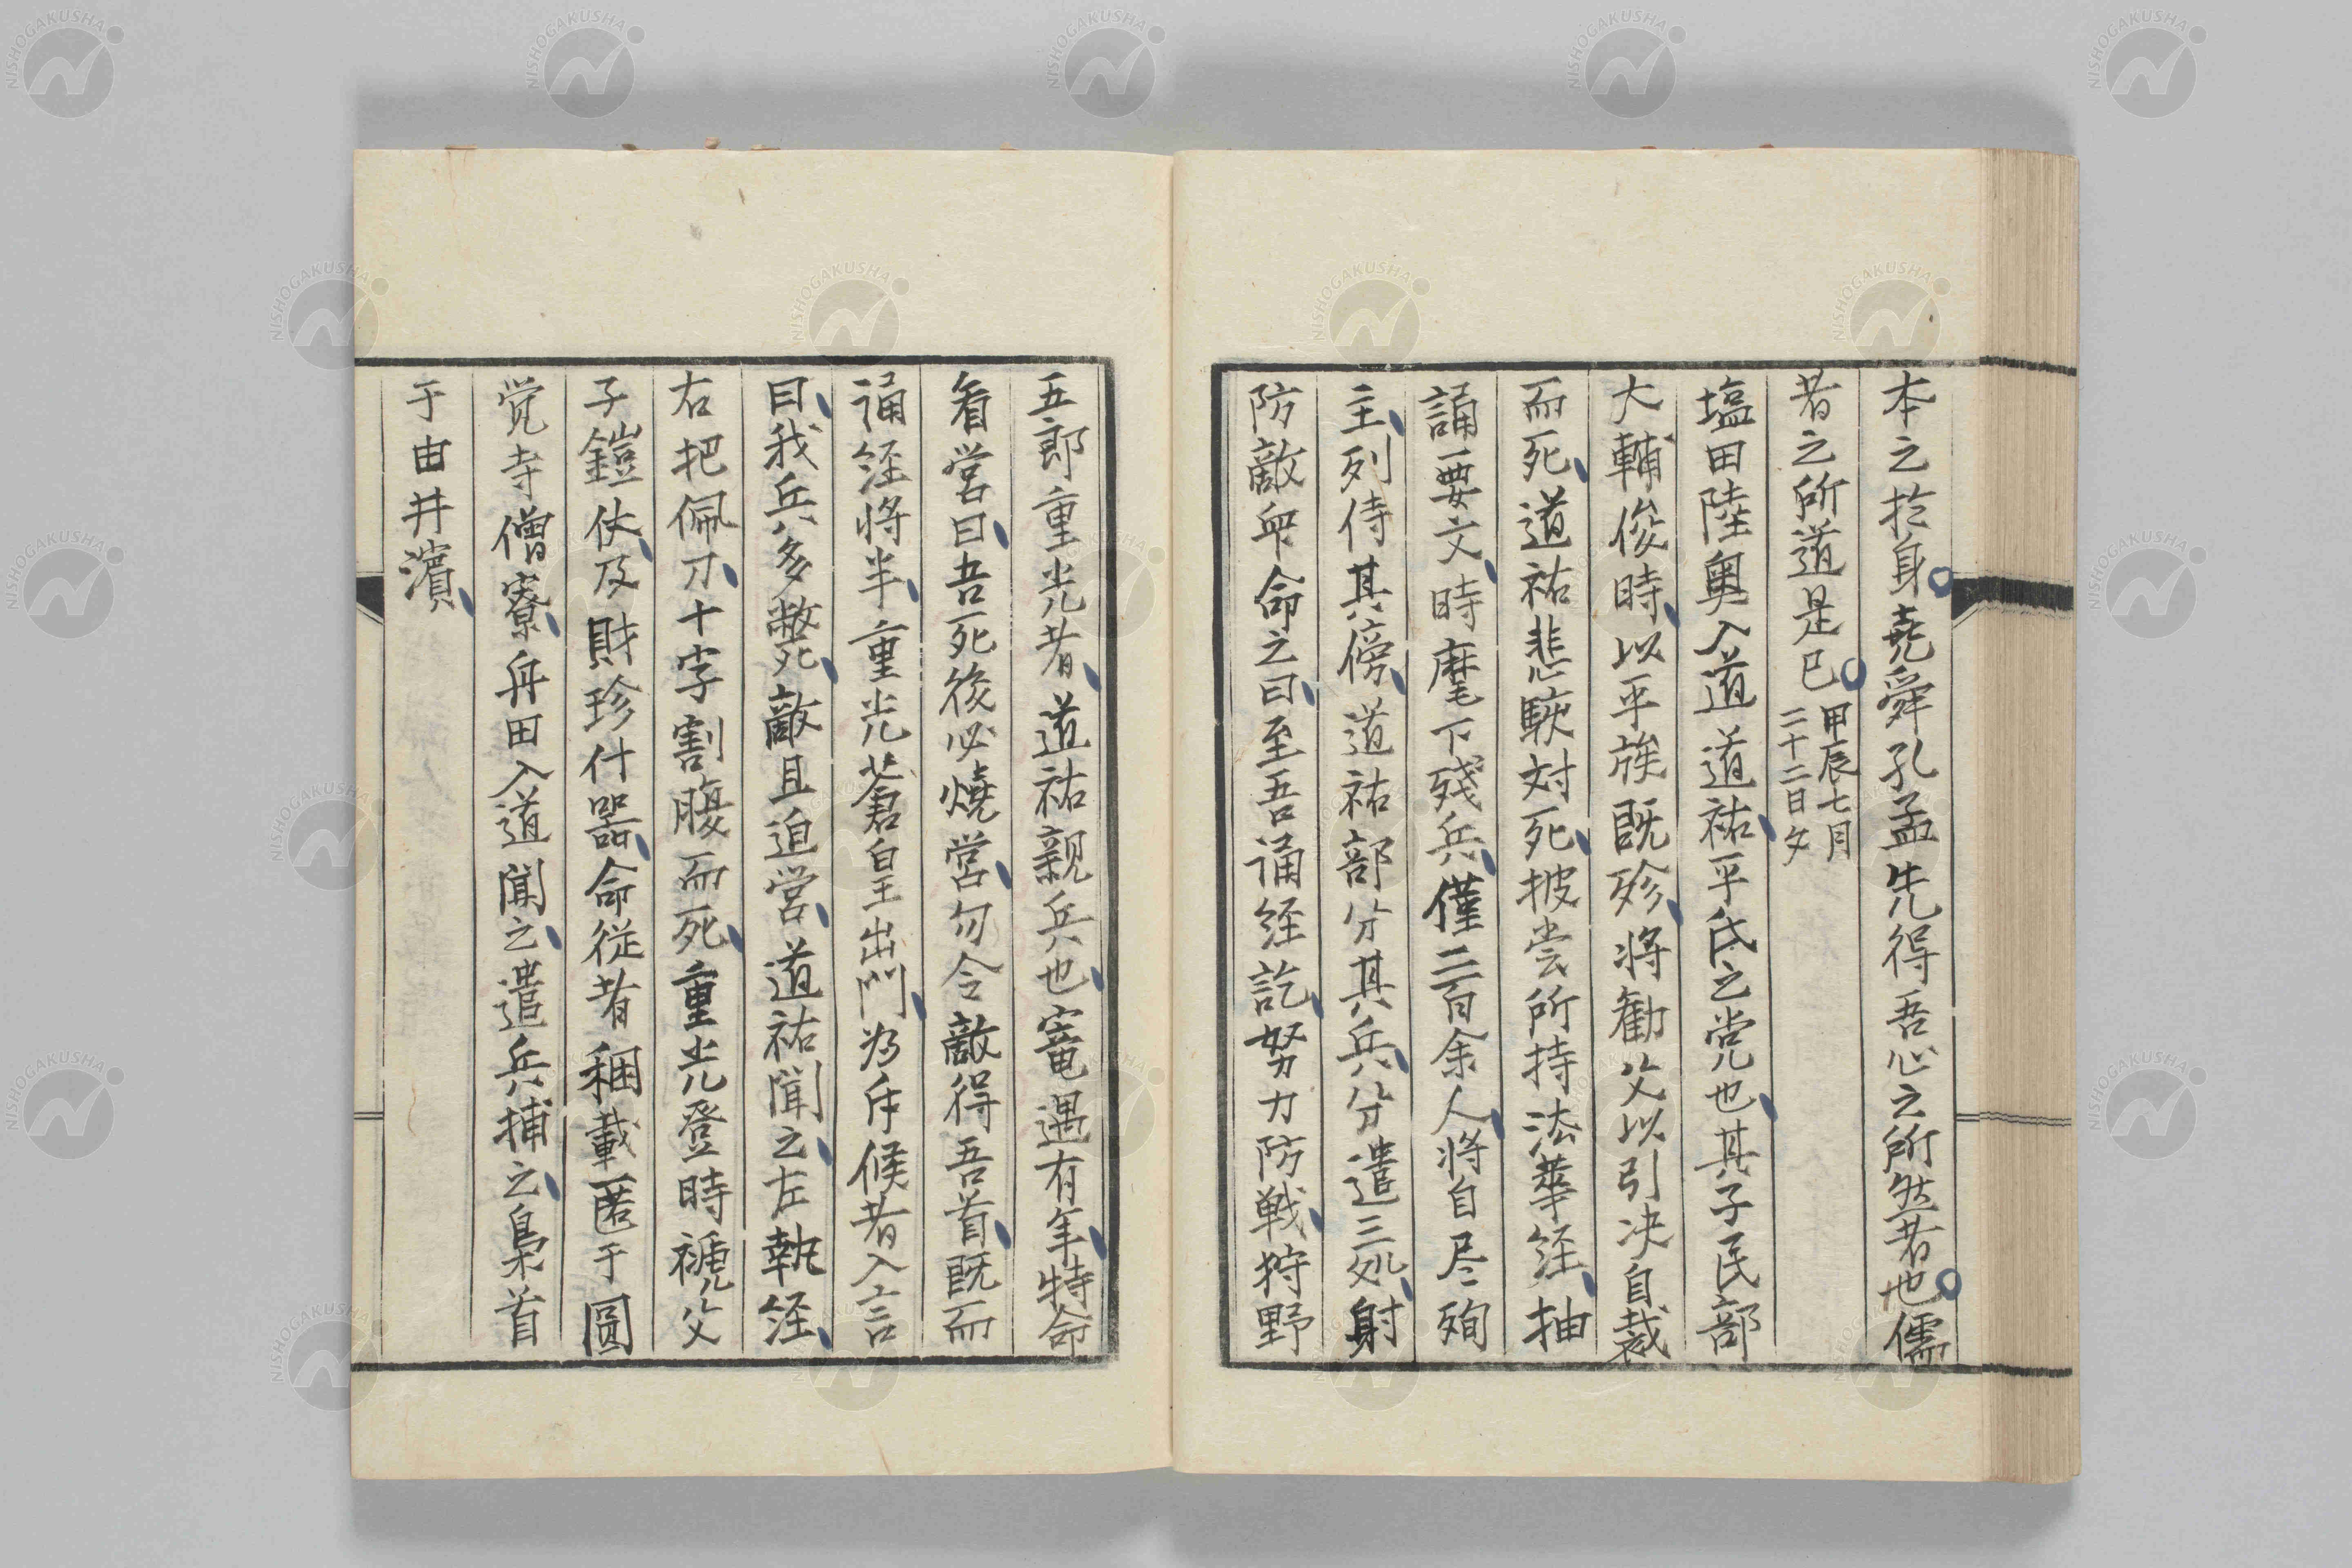 本之於身堯舜孔孟先得吾心之所然者也儒
者之所道是已甲辰七月
二十二日夕
塩田陸奥入道道祐平氏之党也其子民部
大輔俊時以平族既殄将勧父以引决自裁
而死道祐悲駭対死披尝所持法華経抽
誦要文時麾下残兵僅二百余人将自尽殉
主列侍其傍道祐部分其兵分遣三処射
防敵命之曰至吾誦経訖努力防戦狩野
五郎重光者道祐親兵也寵遇有年特命
看営曰吾死後必燒営勿令敵得吾首既而
誦経将半重光蒼皇出門為斥候者入言
曰我兵多斃死敵且迫営道祐聞之左執経
右把佩刀十字割腹而死重光登時褫父
子鎧仗及財珍什器命従者稛載匿于圓
覚寺僧寮舟田入道聞之遣兵捕之梟首
于由井濵
NISHOGAKUSHA